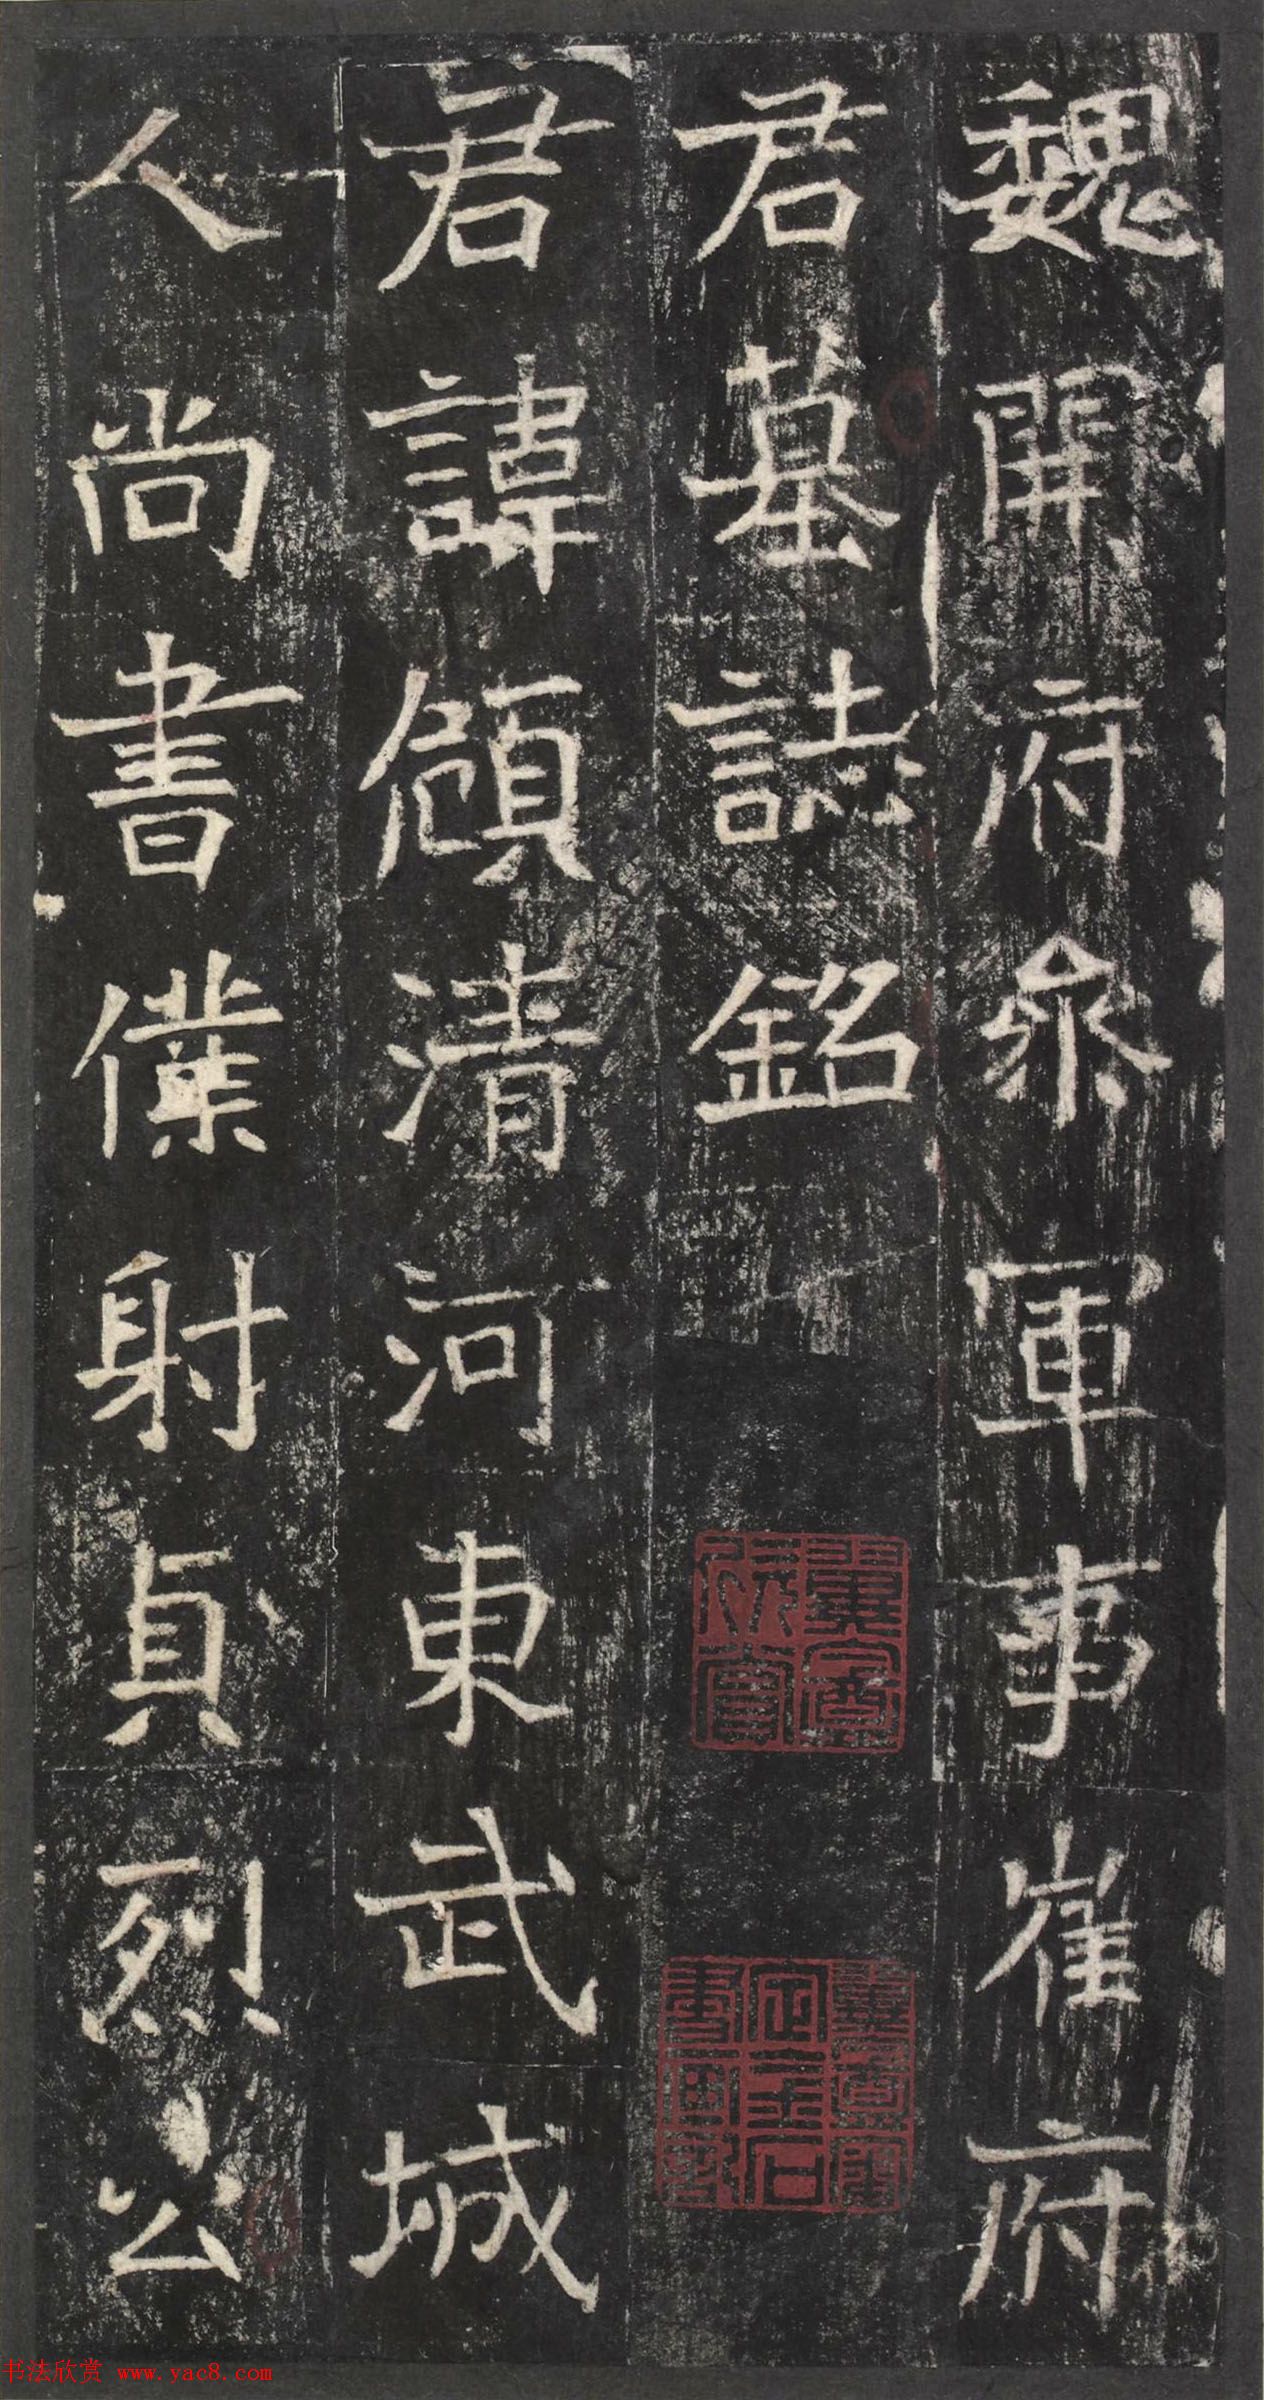 魏開府參軍事崔府
君墓誌銘
君諱頠清河東武城
人尚書僕射貞烈公
书法欣赏 www.yac8.com